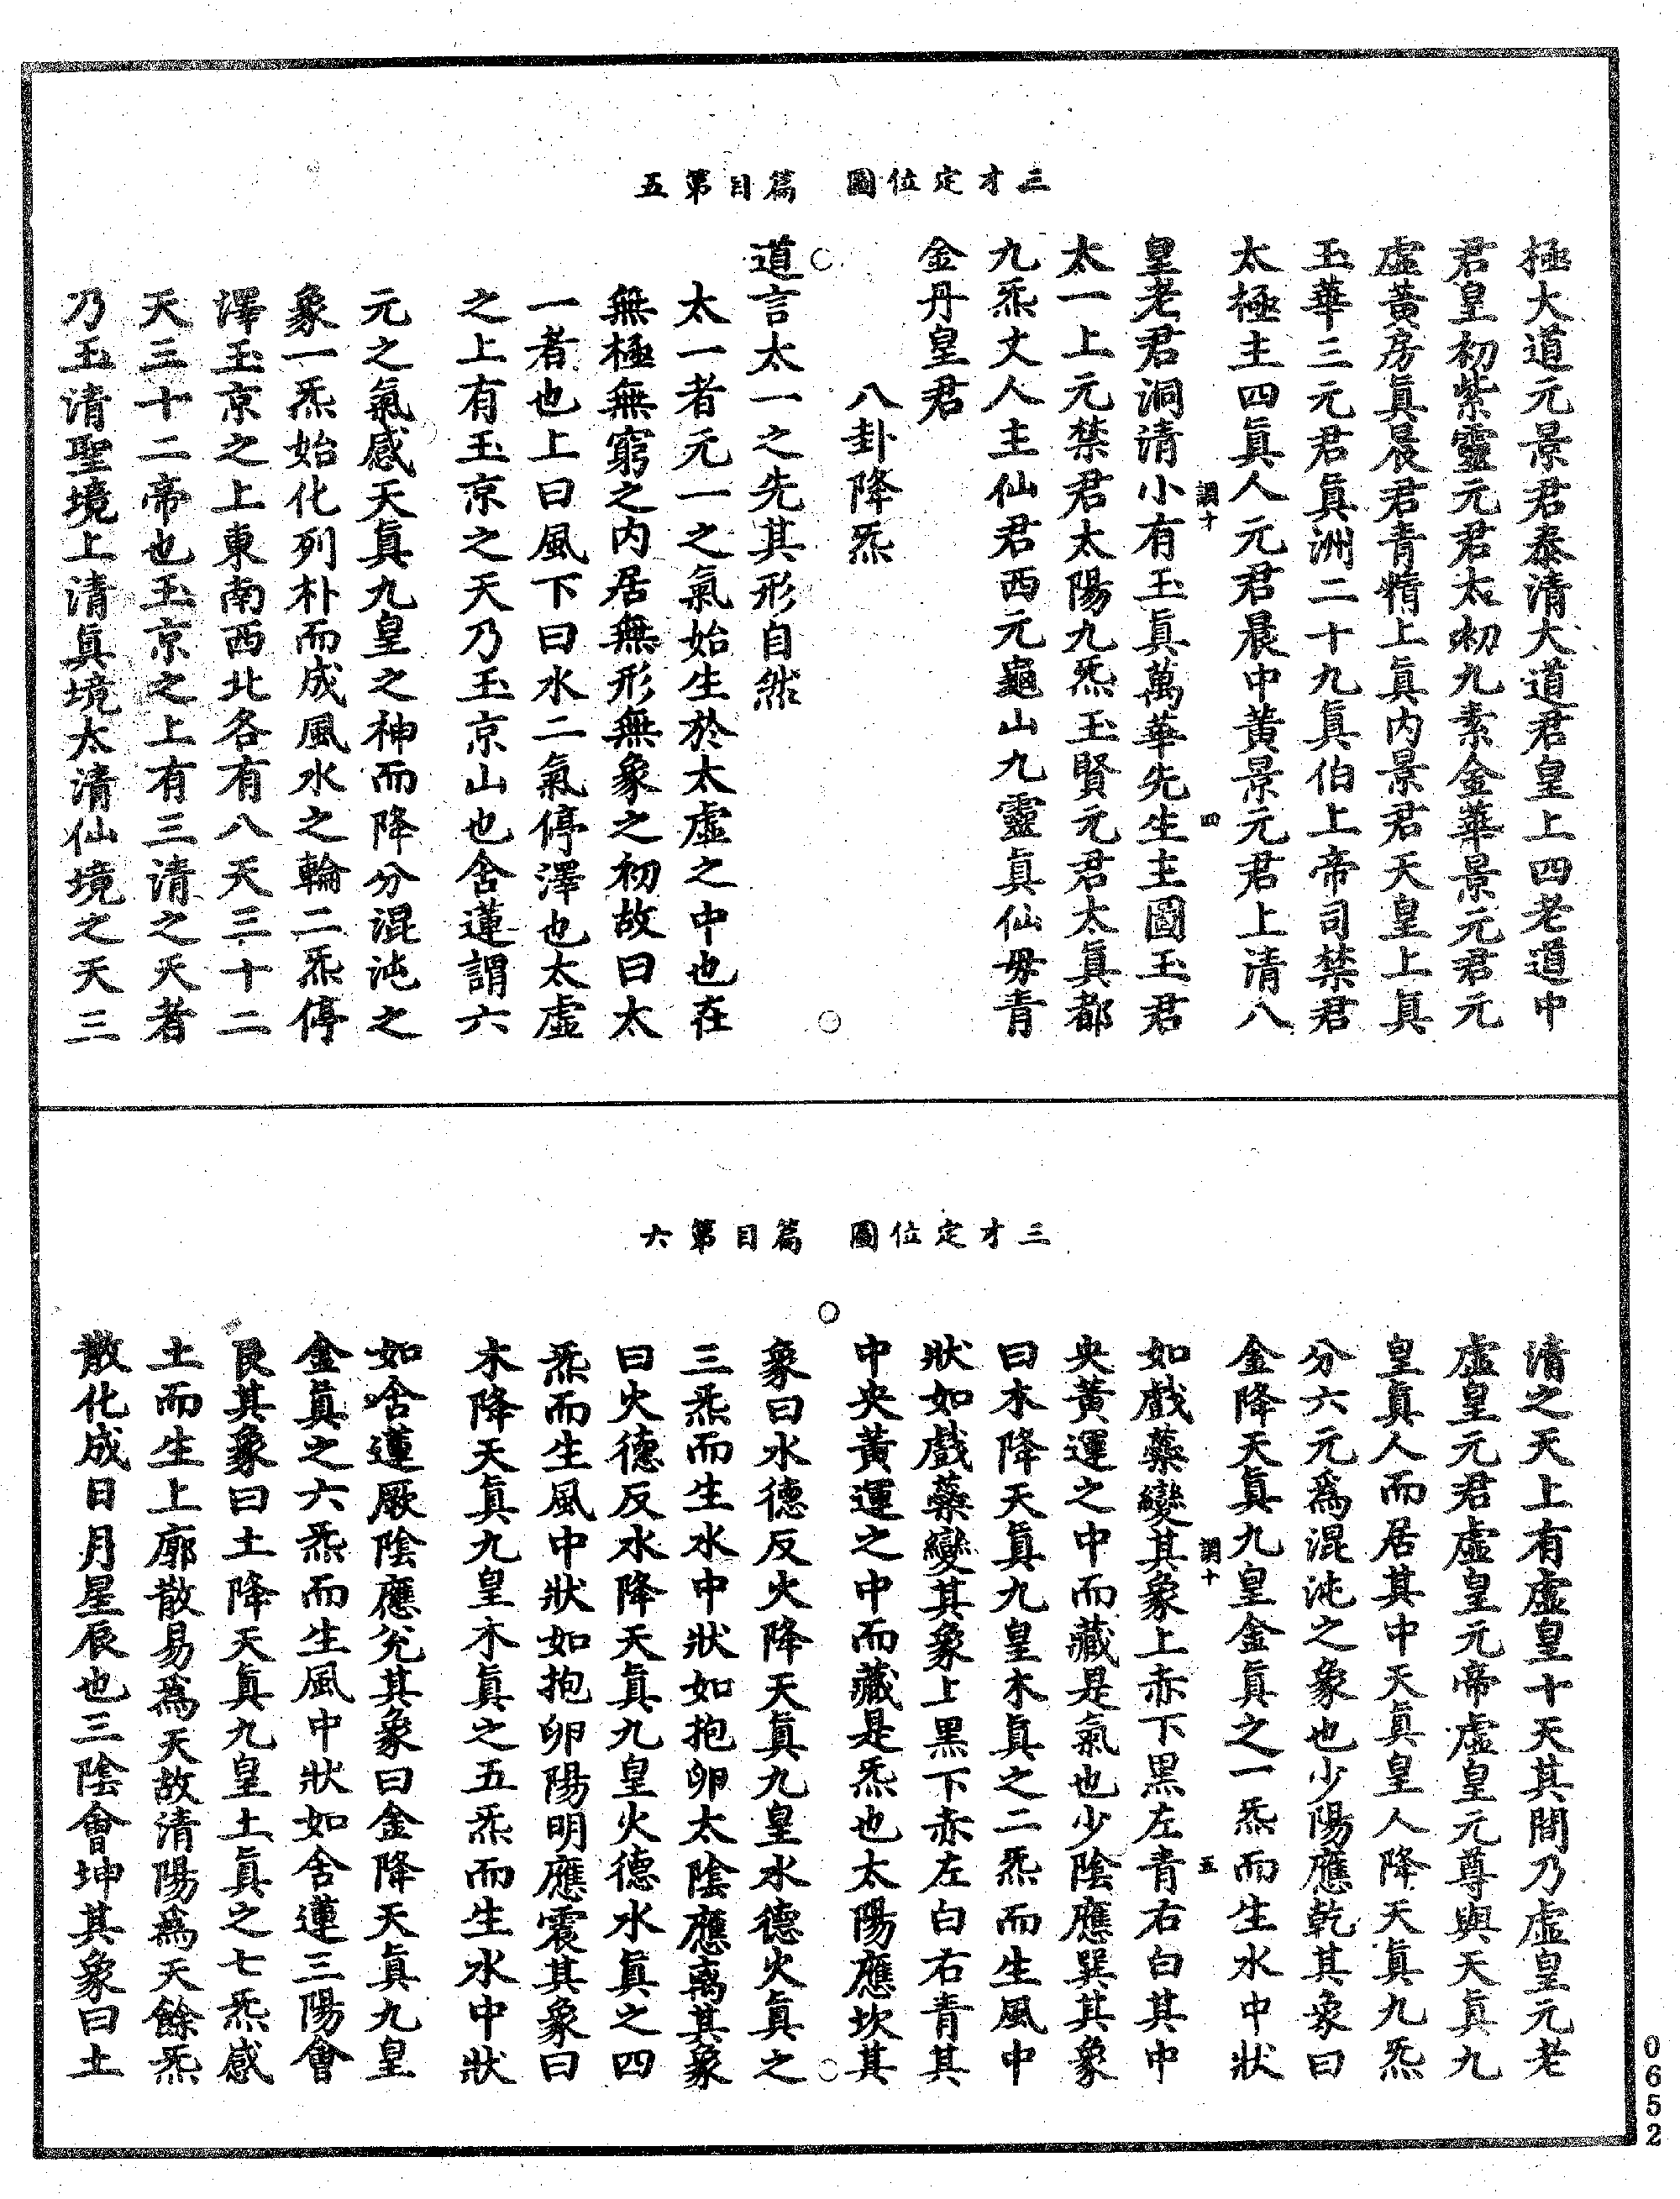 三才定位圖　篇目第五
極大道元景君泰清大道君皇上四老道中
君皇初紫靈元君太初九素金華景元君元
虛黃房眞晨君青精上眞内景君天皇上眞
玉華三元君眞洲二十九眞伯上帝司禁君
太極主四眞人元君晨中黃景元君上清八
調十　四
皇老君洞清小有玉眞萬華先生主圖玉君
太一上元禁君太陽九炁玉賢元君太眞都
九炁丈人主仙君西元龜山九靈眞仙毋青
金丹皇君
八卦降炁
道言太一之先其形自然
太一者元一之氣始生於太虛之中也在
無極無窮之内居無形無象之初故曰太
一者也上曰風下曰水二氣停澤也太虛
之上有玉京之天乃玉京山也舍蓮謂六
元之氣感天眞九皇之神而降分混沌之
象一炁始化列朴而成風水之輪二炁停
澤玉京之上東南西北各有八天三十二
天三十二帝也玉京之上有三清之天者
乃玉清聖境上清眞境太清仙境之天三
三才定位圖　篇目第六
清之天上有虛皇十天其間乃虛皇元老
虛皇元君虛皇元帝虛皇元尊與天眞九
皇眞人而居其中天眞皇人降天眞九炁
分六元爲混沌之象也少陽應乾其象曰
金降天眞九皇金眞之一炁而生水中狀
調十　五
如戲藥變其象上赤下黑左青右白其中
央黃運之中而藏是氣也少陰應巽其象
曰木降天眞九皇木眞之二炁而生風中
狀如戲藥變其象上黑下赤左白右青其
中央黃運之中而藏是炁也太陽應坎其
象曰水德反火降天眞九皇水德火眞之
三炁而生水中狀如抱卵太陰應离其象
曰火德反水降天眞九皇火德水眞之四
炁而生風中狀如抱卵陽明應震其象曰
木降天眞九皇木眞之五炁而生水中狀
如舍蓮厥陰應兊其象曰金降天眞九皇
金眞之六炁而生風中狀如舍蓮三陽會
艮其象曰土降天眞九皇土眞之七炁感
土而生上廓散易爲天故清陽爲天餘炁
散化成日月星辰也三陰會坤其象曰土
0652